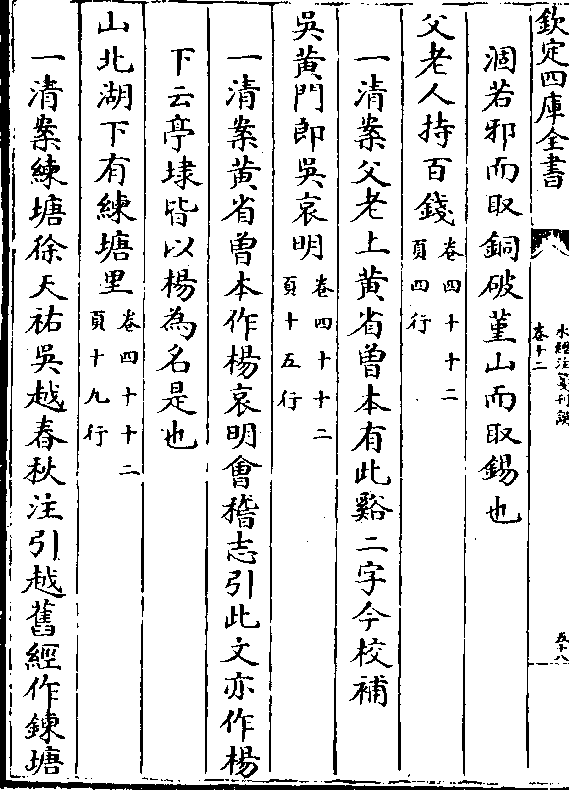 欽定四庫全書
水經注箋刊誤
卷十二
五十八
涸若邪而取銅破堇山而取錫也
父老人持百錢卷四十十二頁四行
一清案父老上黃省曾本有此谿二字今校補
吳黃門郎吳哀明卷四十十二頁十五行
一清案黃省曾本作楊哀明會稽志引此文亦作楊
下云亭埭皆以楊為名是也
山北湖下有練塘里卷四十十二頁十九行
一清案練塘徐天祐吳越春秋注引越舊經作鍊塘